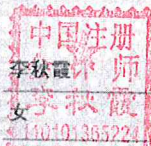 中国注册
李秋霞
师
李秋霞
女
110101365224